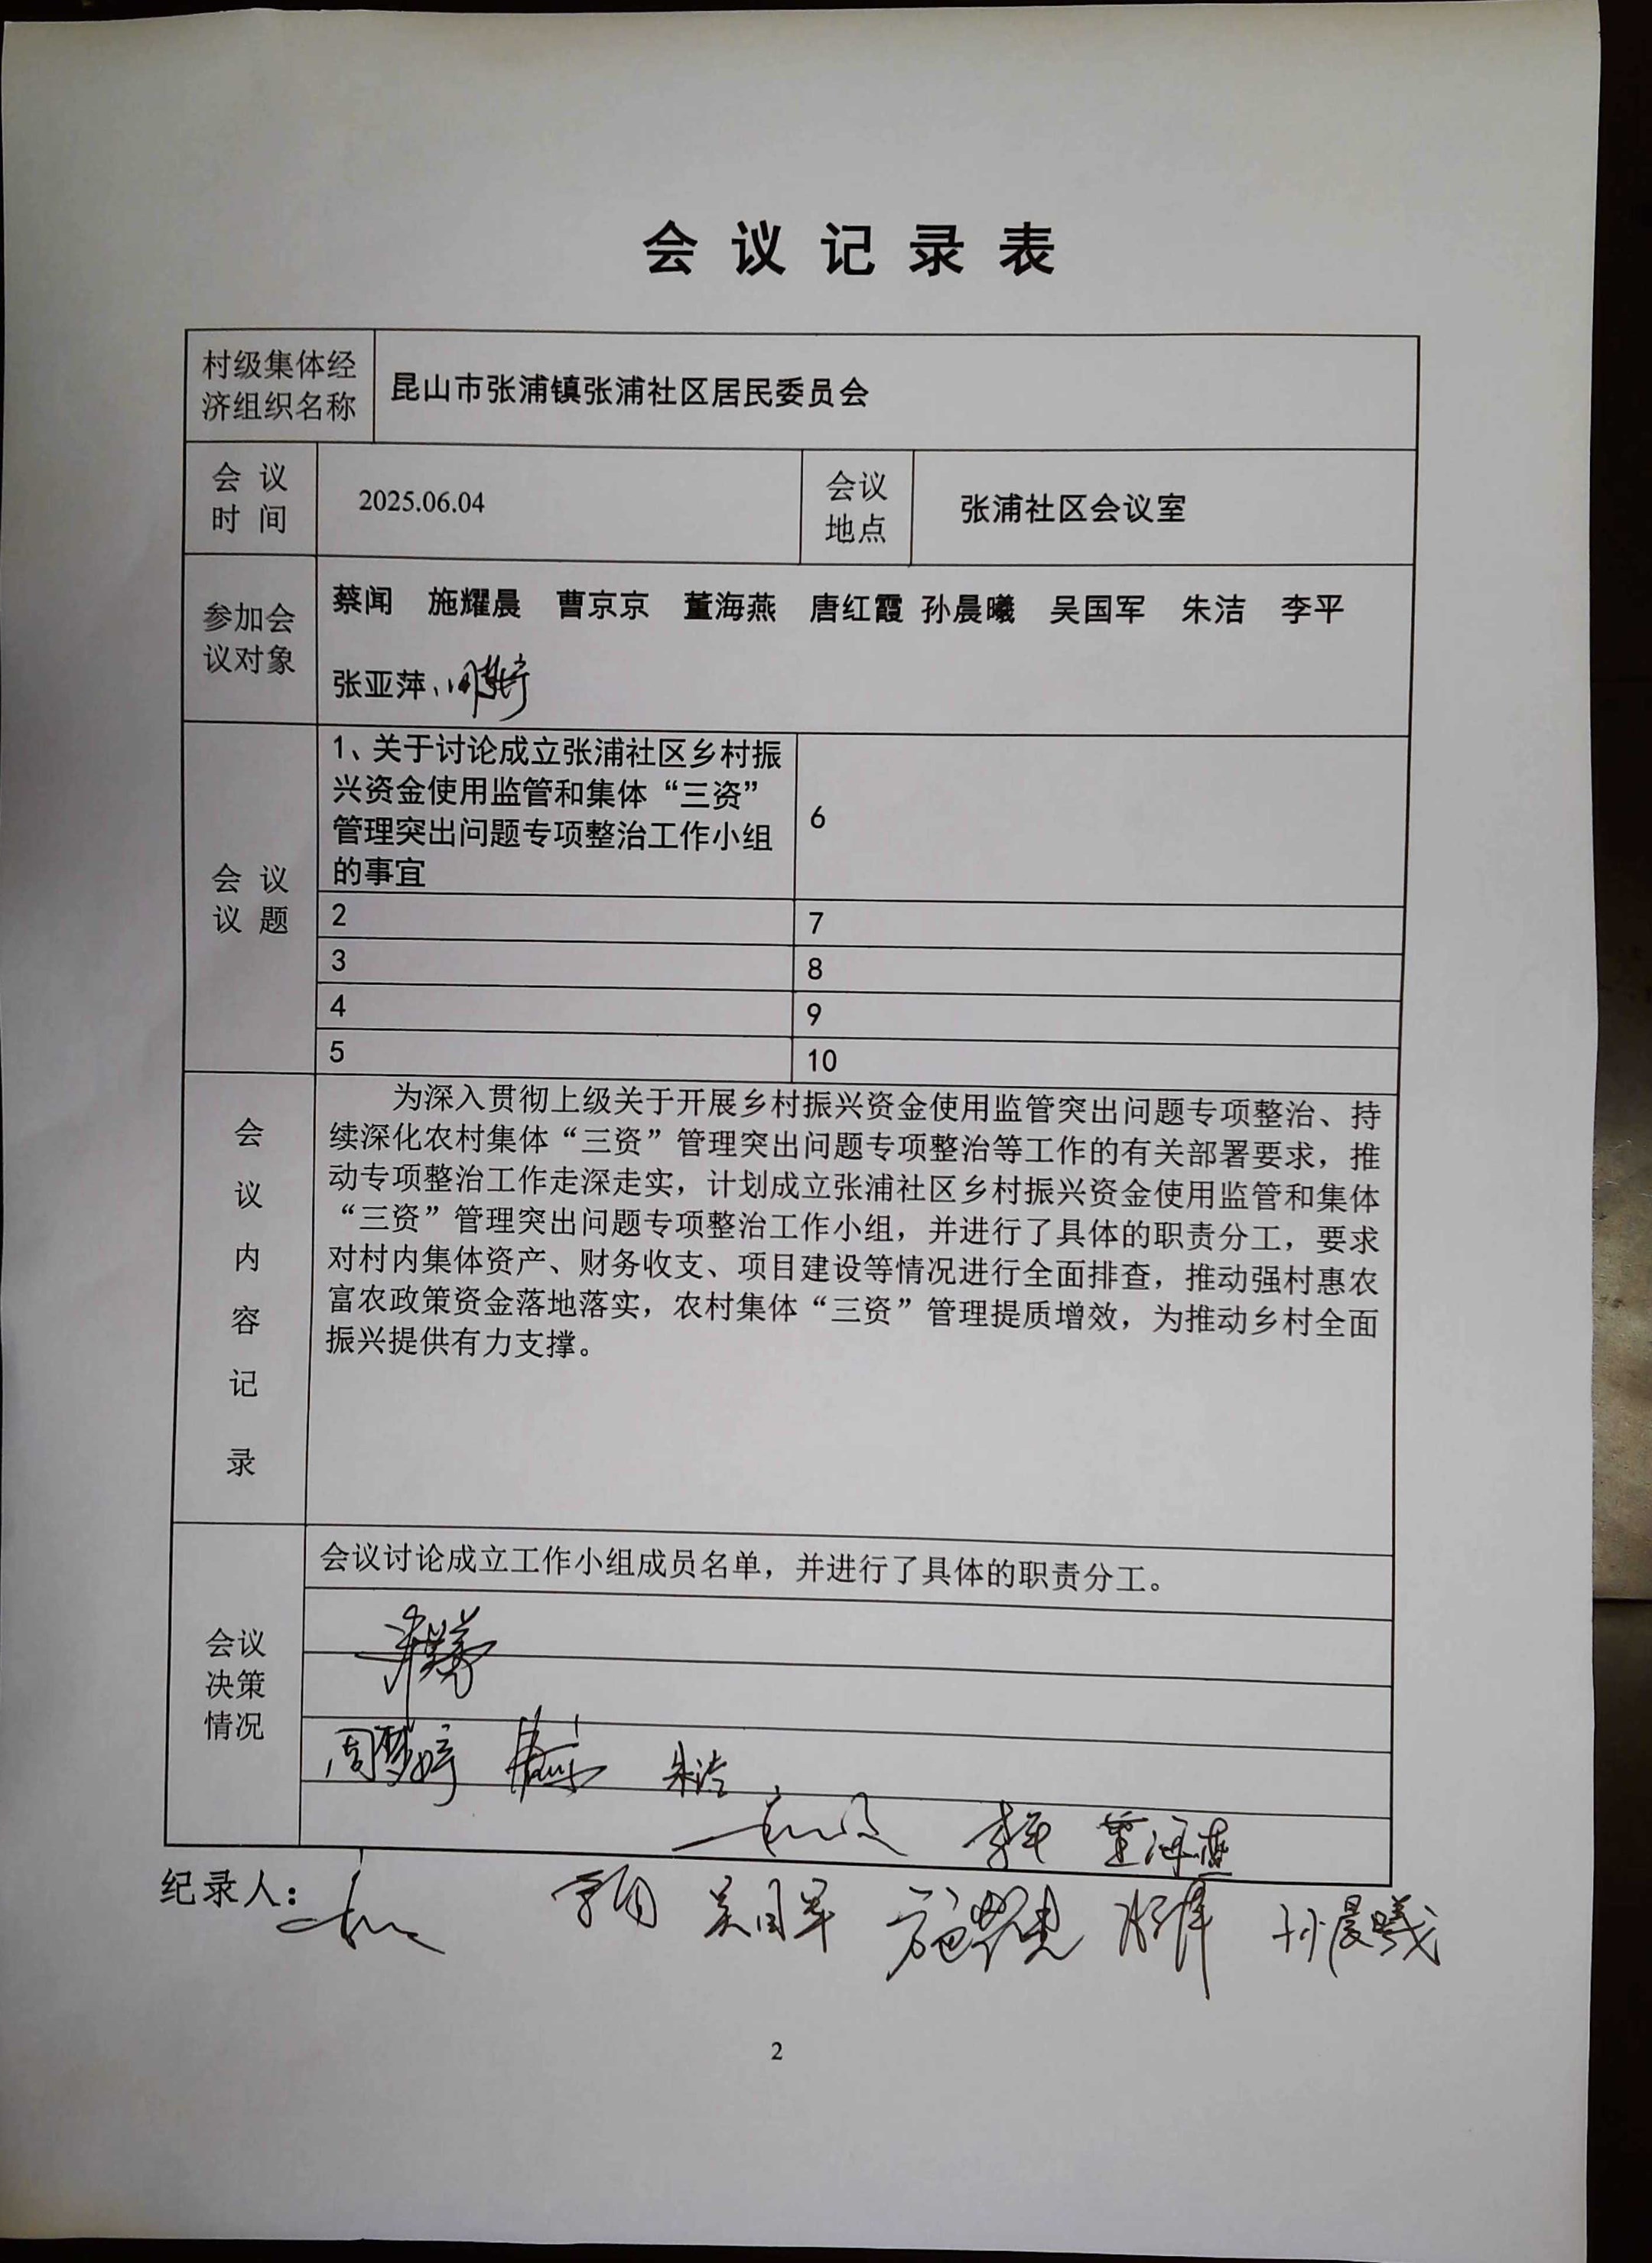 会议记录表
村级集体经
济组织名称
昆山市张浦镇张浦社区居民委员会
会议
时间
2025.06.04
会议
地点
张浦社区会议室
参加会
议对象
蔡闻 施耀晨 曹京京 董海燕 唐红霞 孙晨曦 吴国军 朱洁 李平
张亚萍、周梦婷
会议
议题
1、关于讨论成立张浦社区乡村振
兴资金使用监管和集体“三资”
管理突出问题专项整治工作小组
的事宜
6
2
7
3
8
4
9
5
10
会
议
内
容
记
录
为深入贯彻上级关于开展乡村振兴资金使用监管突出问题专项整治、持
续深化农村集体“三资”管理突出问题专项整治等工作的有关部署要求，推
动专项整治工作走深走实，计划成立张浦社区乡村振兴资金使用监管和集体
“三资”管理突出问题专项整治工作小组，并进行了具体的职责分工，要求
对村内集体资产、财务收支、项目建设等情况进行全面排查，推动强村惠农
富农政策资金落地落实，农村集体“三资”管理提质增效，为推动乡村全面
振兴提供有力支撑。
会议
决策
情况
会议讨论成立工作小组成员名单，并进行了具体的职责分工。
周梦婷 朱洁
李平 董海燕
纪录人：
吴国军 孙晨曦
2